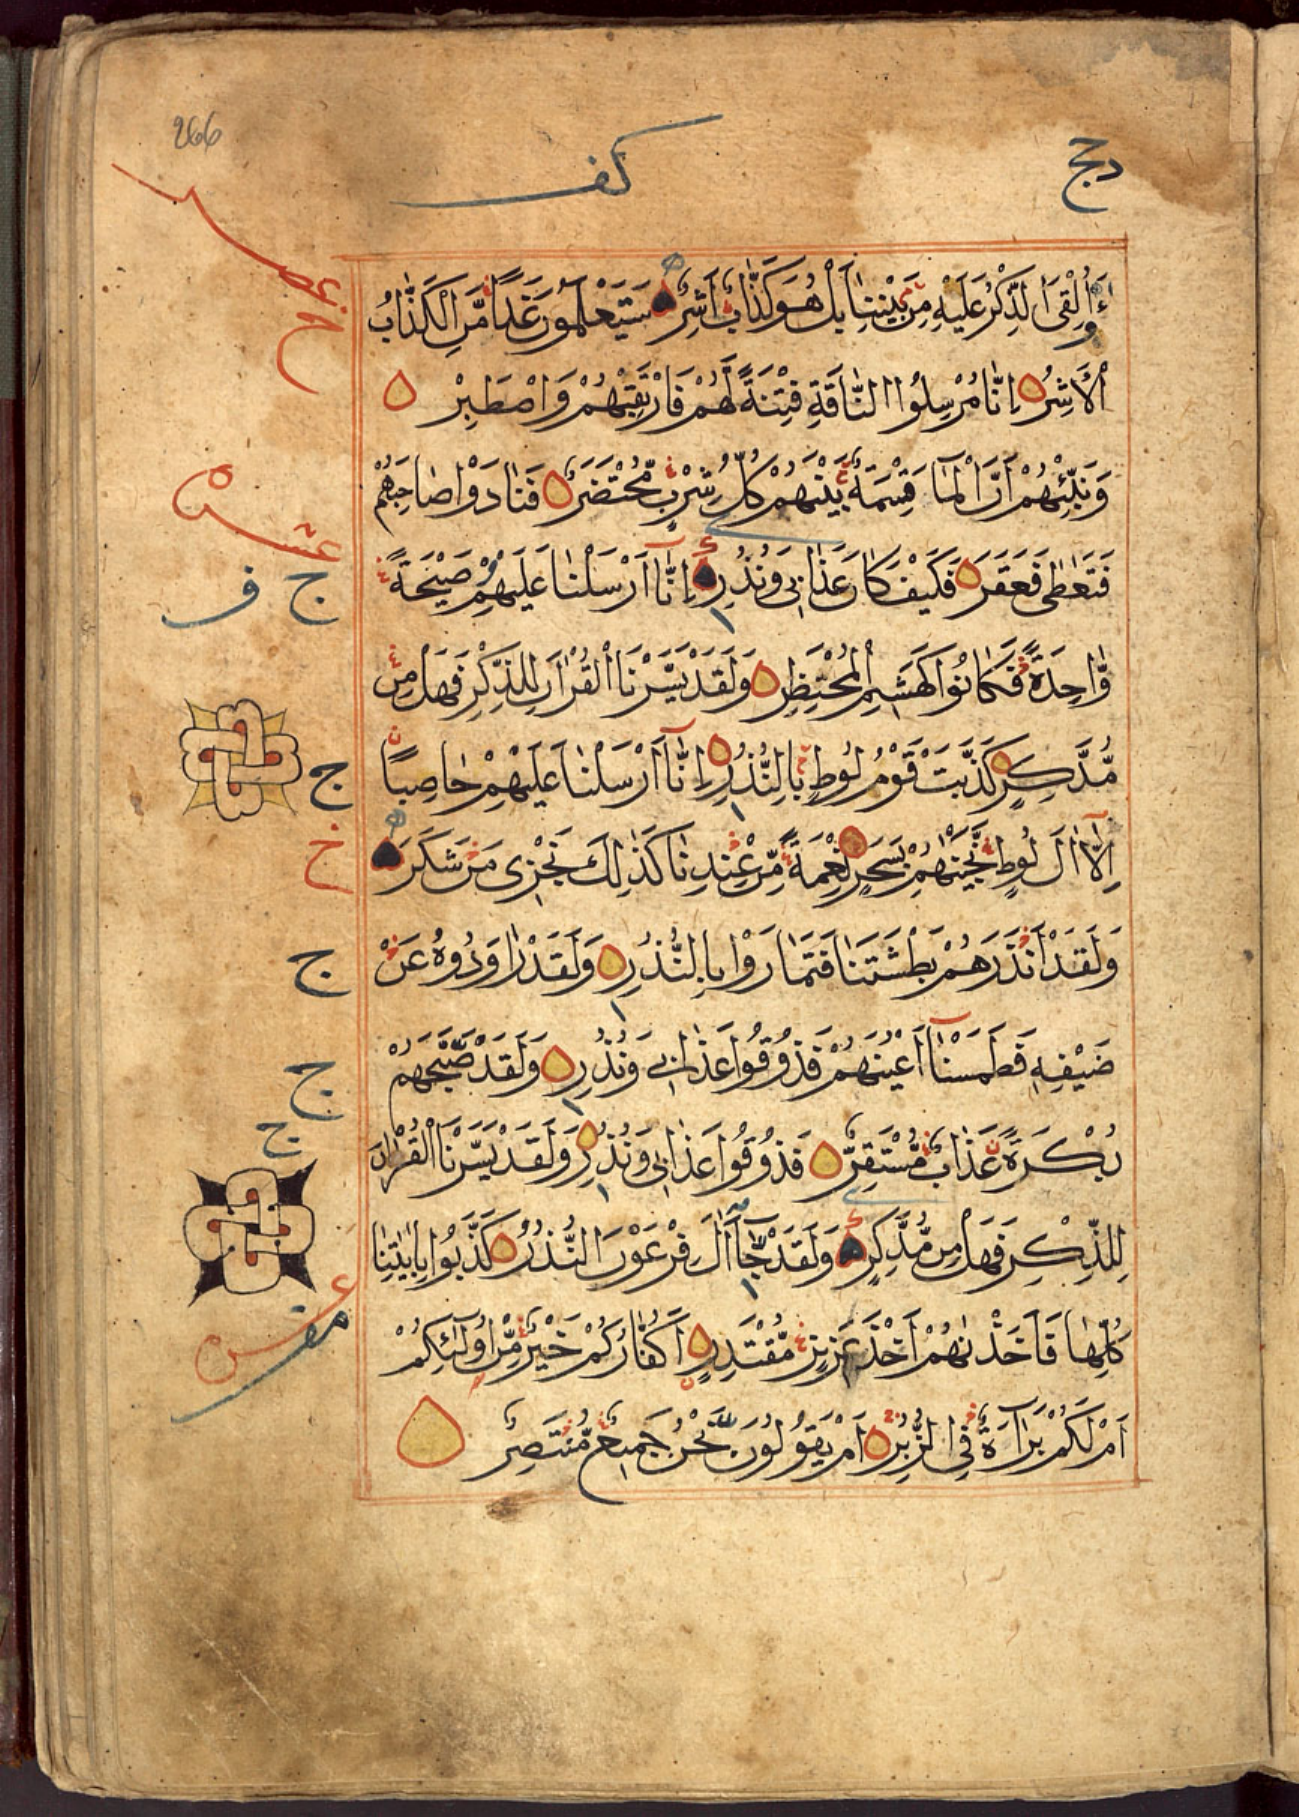 266
ءَأُلْقِىَ الذِّكْرُ عَلَيْهِ مِنْ بَيْنِنَا بَلْ هُوَ كَذَّابٌ أَشِرٌ سَيَعْلَمُونَ غَدًا مَّنِ الْكَذَّابُ
الْأَشِرُ إِنَّا مُرْسِلُوا النَّاقَةِ فِتْنَةً لَّهُمْ فَارْتَقِبْهُمْ وَاصْطَبِرْ
وَنَبِّئْهُمْ أَنَّ الْمَآءَ قِسْمَةٌ بَيْنَهُمْ كُلُّ شِرْبٍ مُّحْتَضَرٌ فَنَادَوْا صَاحِبَهُمْ
فَتَعَاطَى فَعَقَرَ فَكَيْفَ كَانَ عَذَابِي وَنُذُرِ إِنَّا أَرْسَلْنَا عَلَيْهِمْ صَيْحَةً
وَّاحِدَةً فَكَانُوا كَهَشِيمِ الْمُحْتَظِرِ وَلَقَدْ يَسَّرْنَا الْقُرْاٰنَ لِلذِّكْرِ فَهَلْ مِنْ
مُّدَّكِرٍ كَذَّبَتْ قَوْمُ لُوطٍ بِالنُّذُرِ إِنَّا أَرْسَلْنَا عَلَيْهِمْ حَاصِبًا
إِلَّا اٰلَ لُوطٍ نَّجَّيْنٰهُمْ بِسَحَرٍ نِعْمَةً مِّنْ عِنْدِنَا كَذٰلِكَ نَجْزِى مَنْ شَكَرَ
وَلَقَدْ أَنْذَرَهُمْ بَطْشَتَنَا فَتَمَارَوْا بِالنُّذُرِ وَلَقَدْ رَاوَدُوهُ عَنْ
ضَيْفِهِ فَطَمَسْنَا أَعْيُنَهُمْ فَذُوقُوا عَذَابِي وَنُذُرِ وَلَقَدْ صَبَّحَهُمْ
بُكْرَةً عَذَابٌ مُّسْتَقِرٌّ فَذُوقُوا عَذَابِي وَنُذُرِ وَلَقَدْ يَسَّرْنَا الْقُرْاٰنَ
لِلذِّكْرِ فَهَلْ مِن مُّدَّكِرٍ وَلَقَدْ جَآءَ اٰلَ فِرْعَوْنَ النُّذُرُ كَذَّبُوا بِاٰيٰتِنَا
كُلِّهَا فَأَخَذْنٰهُمْ أَخْذَ عَزِيزٍ مُّقْتَدِرٍ أَكُفَّارُكُمْ خَيْرٌ مِّنْ أُولٰٓئِكُمْ
أَمْ لَكُمْ بَرَآءَةٌ فِي الزُّبُرِ أَمْ يَقُولُونَ نَحْنُ جَمِيعٌ مُّنْتَصِرٌ